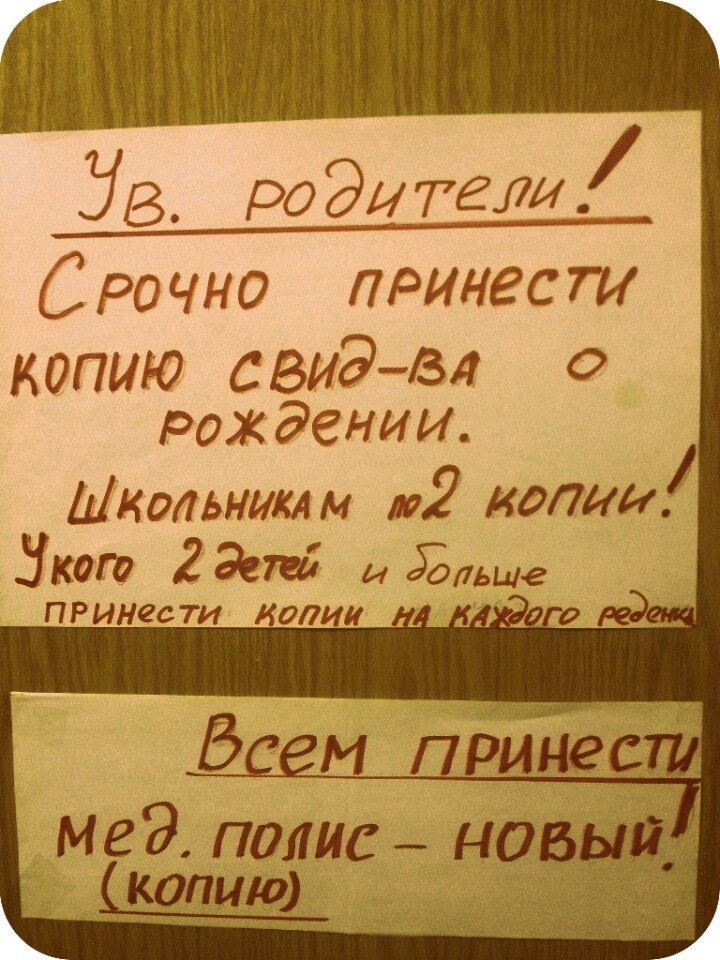 Ув. родители!
Срочно принести
копию свид-ва о
рождении.
Школьникам по 2 копии!
У кого 2 детей и больше
принести копии на каждого ребенка
Всем принести
мед. полис - новый!
(копию)